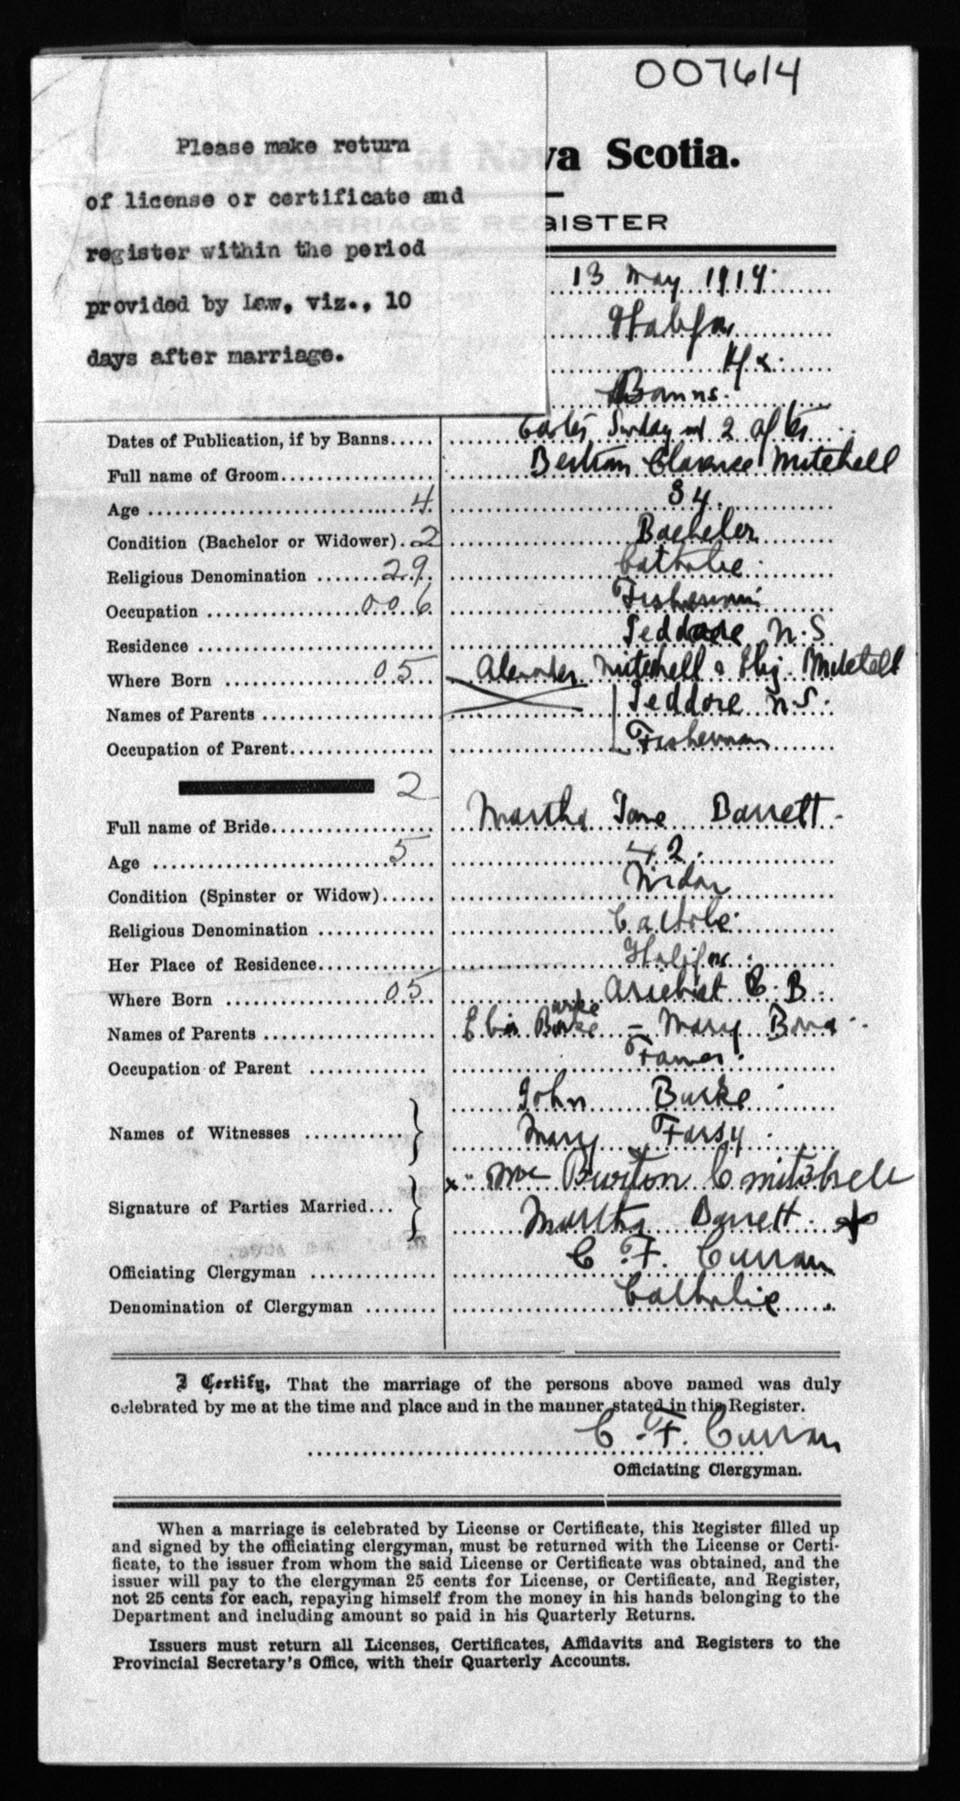 007614
Please make return
of license or certificate and
register within the period
provided by Law, viz., 10
days after marriage.
va Scotia.
GISTER
13 May 1919.
Halifax
Hx.
Banns.
Dates of Publication, if by Banns..... Easter Sunday and 2 after
Full name of Groom................ Bertram Clarence Mitchell
Age ............................ 4 34.
Condition (Bachelor or Widower). 2 Bachelor
Religious Denomination ....... 29 Catholic
Occupation .................. 006 Fisherman
Residence .................... Jeddore N.S
Where Born ................ 05 Alexander Mitchell & Eliz. Mitchell
Names of Parents ................. Jeddore N.S.
Occupation of Parent.............. Fisherman
2
Full name of Bride................ Martha Jane Barrett
Age ............................ 5 42.
Condition (Spinster or Widow)...... Widow
Religious Denomination ............ Catholic
Her Place of Residence............ Halifax
Where Born ................ 05 Arichat C.B.
Names of Parents ................. Burke – Mary
Occupation of Parent ............
Names of Witnesses ........... } John Burke
Mary
Signature of Parties Married... } x Burton C Mitchell
Martha Barrett. +
Officiating Clergyman ............. C. F. Curran
Denomination of Clergyman ........ Catholic
I Certify, That the marriage of the persons above named was duly
celebrated by me at the time and place and in the manner stated in this Register.
C. F. Curran
Officiating Clergyman.
When a marriage is celebrated by License or Certificate, this Register filled up
and signed by the officiating clergyman, must be returned with the License or Certi-
ficate, to the issuer from whom the said License or Certificate was obtained, and the
issuer will pay to the clergyman 25 cents for License, or Certificate, and Register,
not 25 cents for each, repaying himself from the money in his hands belonging to the
Department and including amount so paid in his Quarterly Returns.
Issuers must return all Licenses, Certificates, Affidavits and Registers to the
Provincial Secretary's Office, with their Quarterly Accounts.